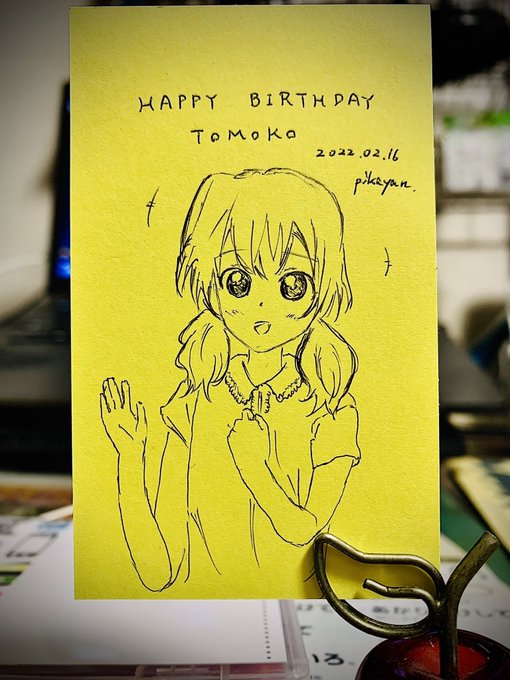 HAPPY BIRTHDAY
TOMOKO
2022.02.16
pikayan.